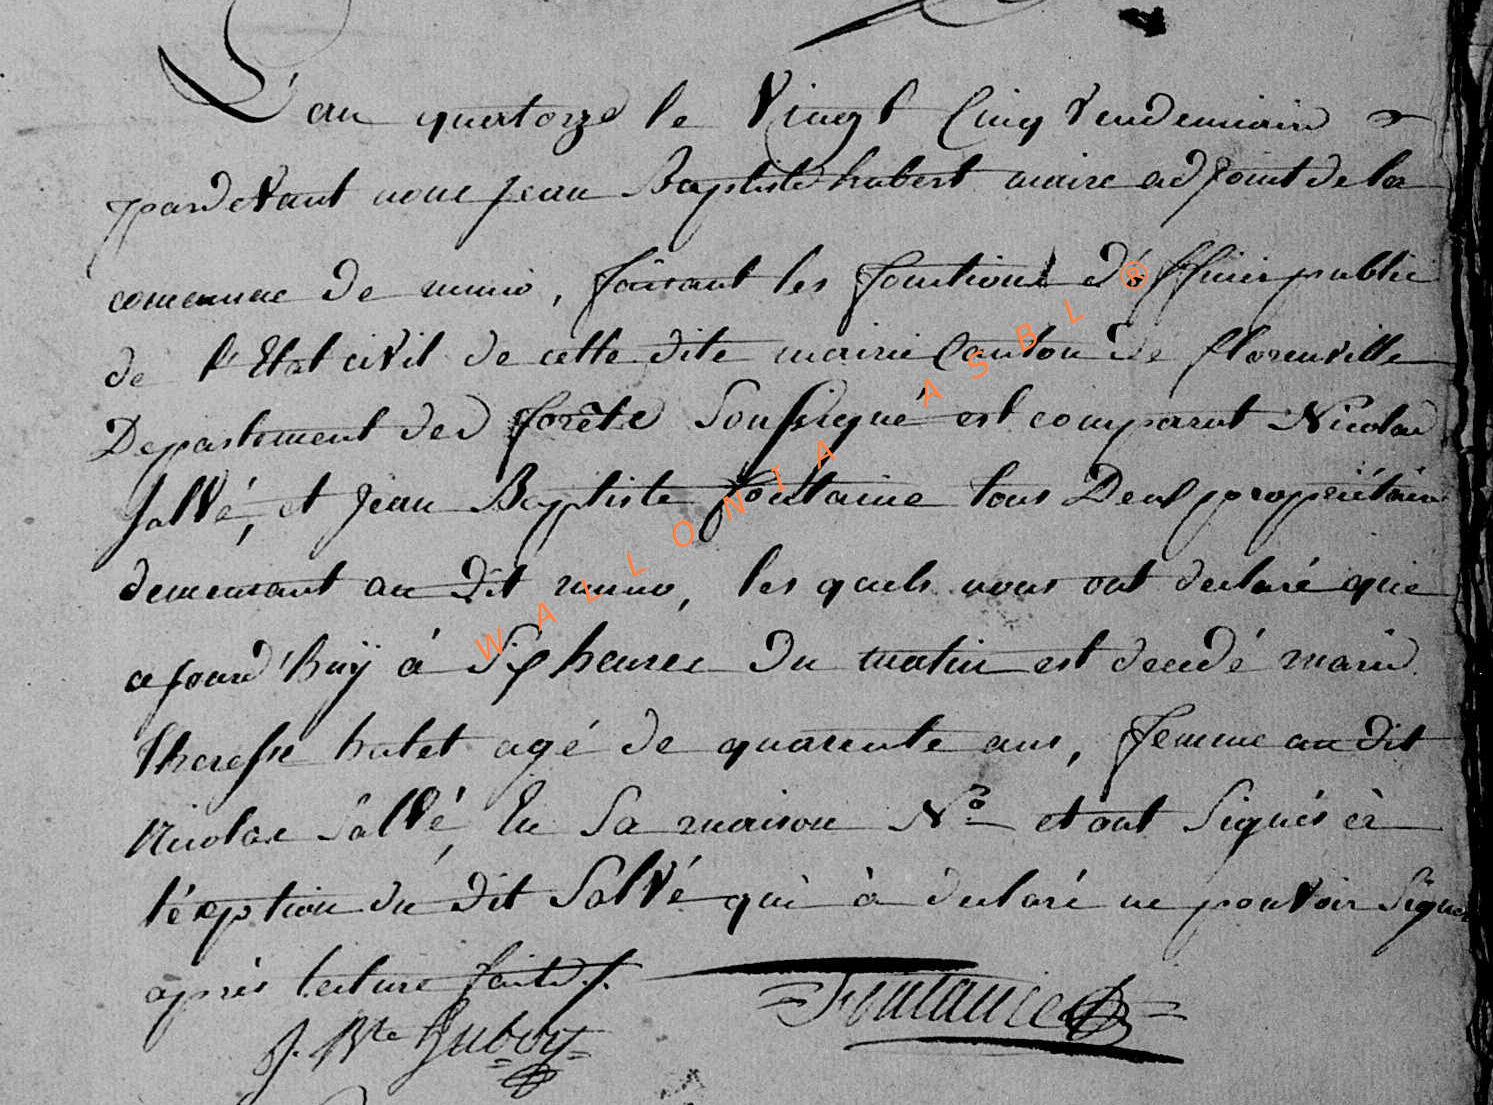 L'an quatorze le Vingt Cinq Vendemiaire
pardevant nous Jean Baptiste hubert maire adjoint de la
commune de muno, faisant les fonctions d'officier public
de l'Etat civil de cette dite mairie Canton de florenville
Departement des forêts Soussigné est comparut Nicolas
Salvé, et Jean Baptiste fontaine tous Deux propriétaire
demeurant au dit muno, les quels nous ont declaré que
ajourd'huÿ á Six heures du matin est decedé marie
theresse hutet agé de quarente ans, femme au dit
Nicolas Salvé, En Sa maison N° et ont Signés à
l'éxption du dit Salvé qui à declaré ne pouvoir Signer
après lecture faite ./.
J. Bte Hubert Fontaine
WALLONIA ASBL ®